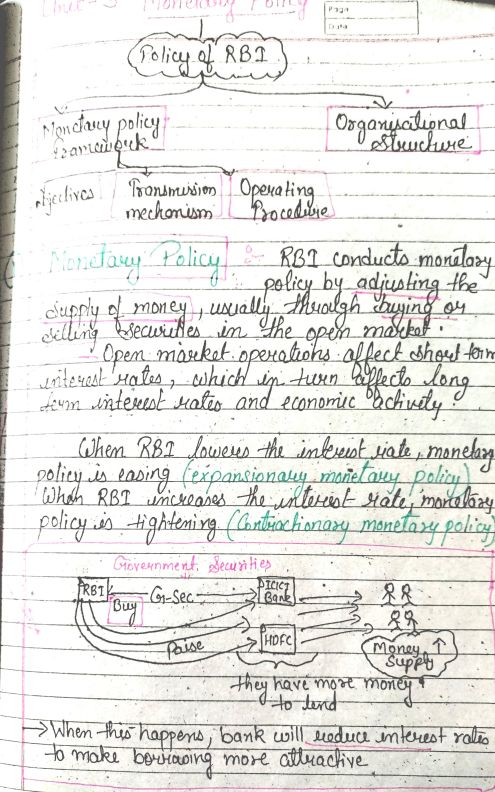 Unit-3 Monetary Policy
Page
Date
Policy of RBI
Monetary policy
framework
Organisational
structure
Objectives
Transmission
mechanism
Operating
Procedure
Monetary Policy :- RBI conducts monetary
policy by adjusting the
supply of money, usually through buying or
selling securities in the open market.
Open market operations affect short term
interest rates, which in turn affects long
term interest rates and economic activity.
When RBI lowers the interest rate, monetary
policy is easing (expansionary monetary policy)
When RBI increases the interest rate, monetary
policy is tightening (Contractionary monetary policy)
Government Securities
RBI
G-Sec
ICICI
Bank
Buy
Paise
HDFC
Money ↑
Supply
they have more money
to lend
→ When this happens, bank will reduce interest rates
to make borrowing more attractive